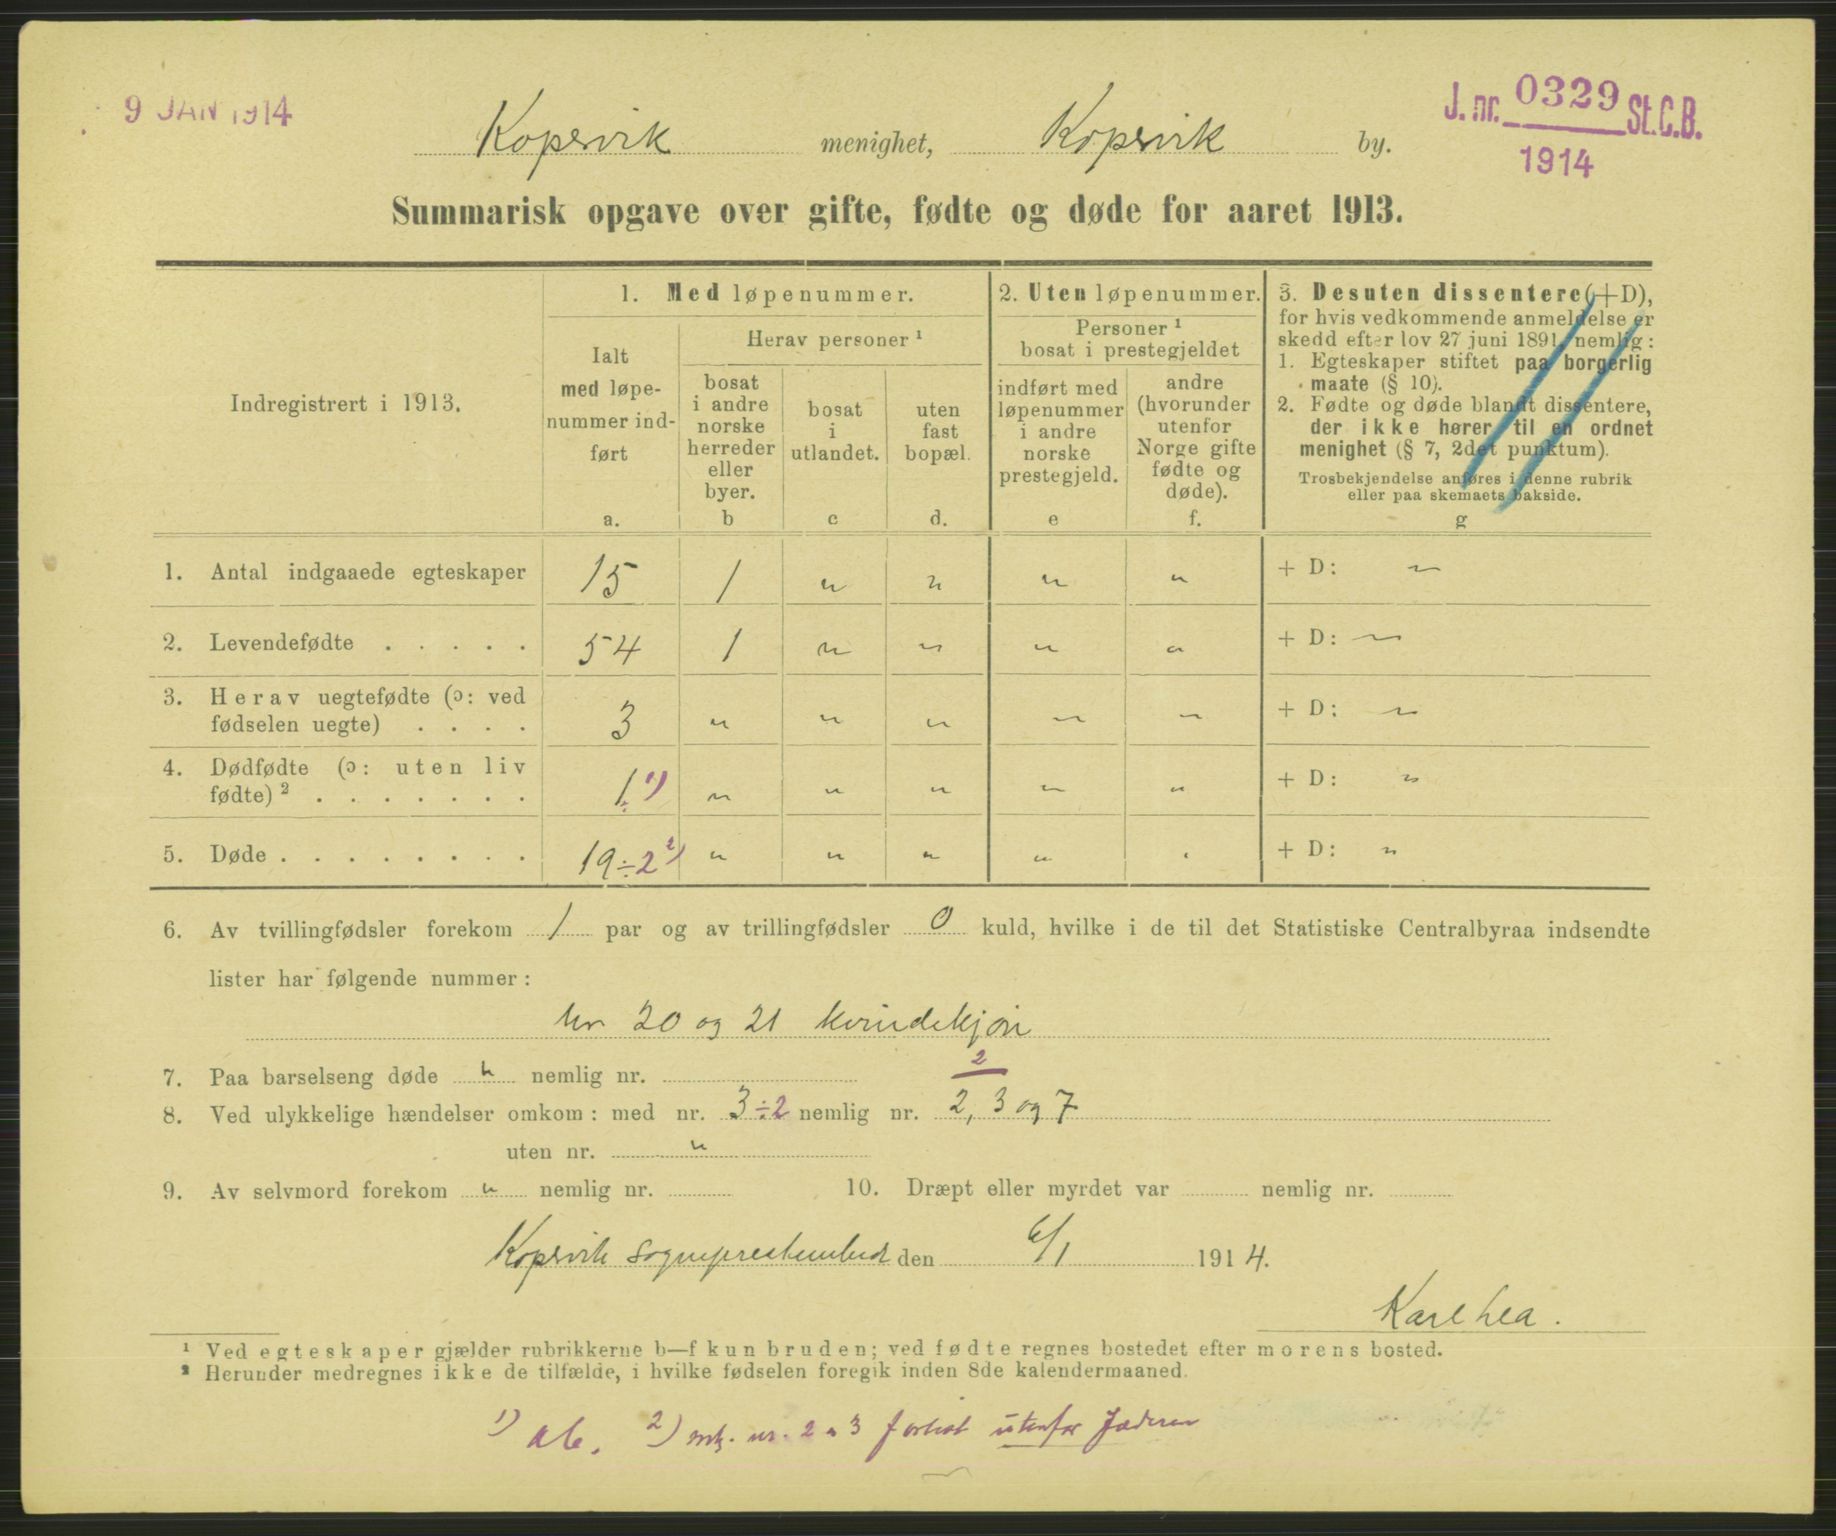 9 JAN 1914
J. nr. 0329 St.C.B.
1914
Kopervik menighet, Kopervik by.
Summarisk opgave over gifte, fødte og døde for aaret 1913.
Indregistrert i 1913.
1. Med løpenummer.
Ialt
med løpe-
nummer ind-
ført
a.
Herav personer ¹
bosat
i andre
norske
herreder
eller
byer.
b
bosat
i
utlandet.
c
uten
fast
bopæl.
d.
2. Uten løpenummer.
Personer ¹
bosat i prestegjeldet
indført med
løpenummer
i andre
norske
prestegjeld.
e
andre
(hvorunder
utenfor
Norge gifte
fødte og
døde).
f.
3. Desuten dissentere (+D),
for hvis vedkommende anmeldelse er
skedd efter lov 27 juni 1891, nemlig:
1. Egteskaper stiftet paa borgerlig
maate (§ 10).
2. Fødte og døde blandt dissentere,
der ikke hører til en ordnet
menighet (§ 7, 2det punktum).
Trosbekjendelse anføres i denne rubrik
eller paa skemaets bakside.
g
1. Antal indgaaede egteskaper 15 1 " " " " + D: "
2. Levendefødte . . . . . 54 1 " " " " + D: "
3. Herav uegtefødte (ɔ: ved
fødselen uegte) . . . . 3 " " " " " + D: "
4. Dødfødte (ɔ: uten liv
fødte) ² . . . . . . . 1 ¹) " " " " " + D: "
5. Døde . . . . . . . . 19÷2 ²) " " " " " + D: "
6. Av tvillingfødsler forekom 1 par og av trillingfødsler 0 kuld, hvilke i de til det Statistiske Centralbyraa indsendte
lister har følgende nummer:
Nr 20 og 21 kvindekjøn
7. Paa barselseng døde " nemlig nr.
2
8. Ved ulykkelige hændelser omkom: med nr. 3÷2 nemlig nr. 2, 3 og 7
uten nr. "
9. Av selvmord forekom " nemlig nr. 10. Dræpt eller myrdet var nemlig nr.
Kopervik sogneprestembed den 6/1 1914.
Karl Lea.
¹ Ved egteskaper gjælder rubrikkerne b—f kun bruden; ved fødte regnes bostedet efter morens bosted.
² Herunder medregnes ikke de tilfælde, i hvilke fødselen foregik inden 8de kalendermaaned.
¹) ab. ²) mk. nr. 2 o 3 forlist utenfor Jæderen